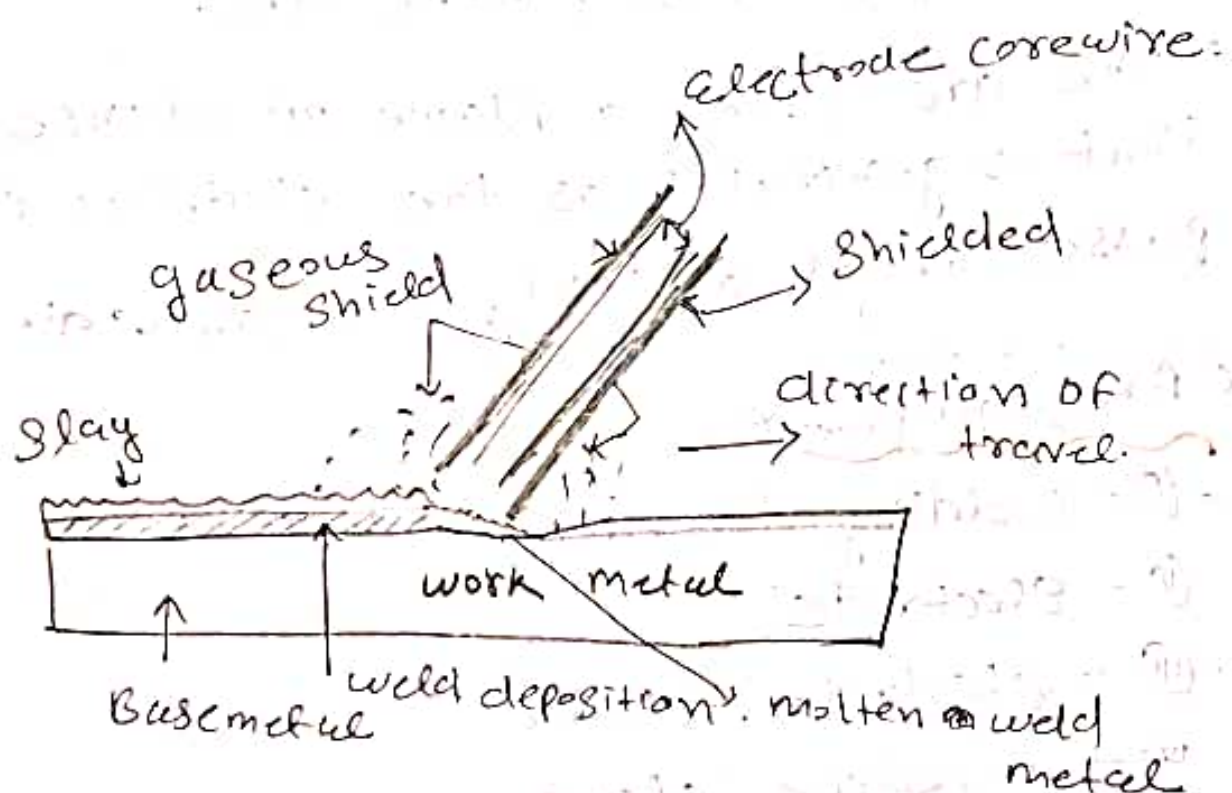 Electrode corewire.
gaseous
shield
Shielded
direction of
travel.
Slay
work metal
Basemetal
weld deposition. molten weld
metal